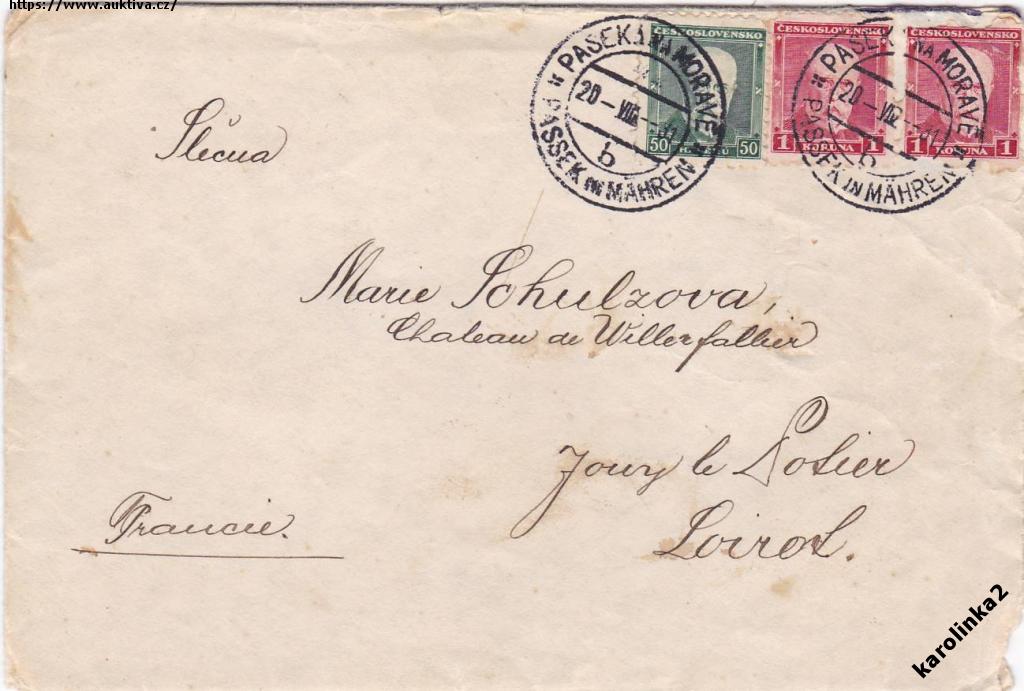 https://www.auktiva.cz/
ČESKOSLOVENSKO
ČESKOSLOVENSKO
ČESKOSLOVENSKO
PASEKA NA MORAVĚ
20 VIII 31
b
PASSEK IN MÄHREN
50 50
1 KORUNA 1
PASEKA NA MORAVĚ
20 VIII 31
b
PASSEK IN MÄHREN
1 KORUNA 1
Slečna
Marie Schulzova,
Chateau de Willerfallier
Jouy le Potier
Loiret.
Francie.
karolinka2